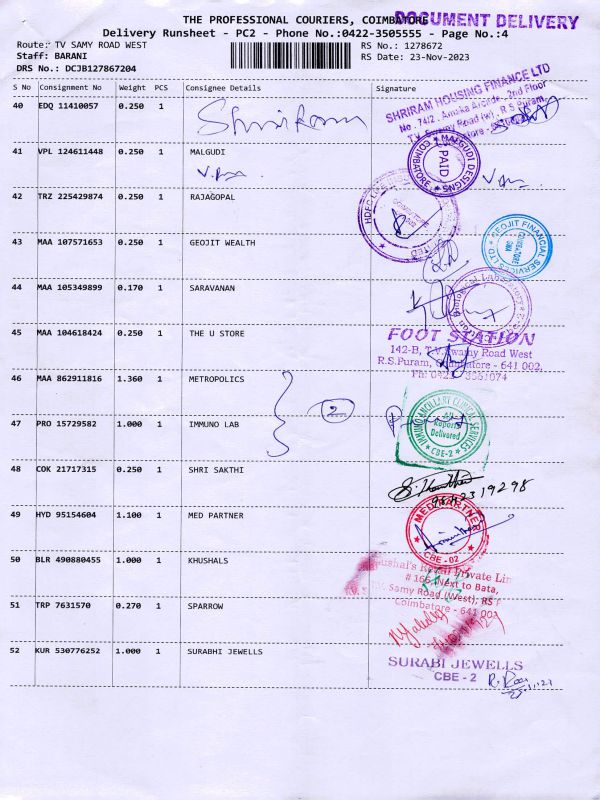 THE PROFESSIONAL COURIERS, COIMBATORE
DOCUMENT DELIVERY
Delivery Runsheet - PC2 - Phone No.:0422-3505555 - Page No.:4
Route: TV SAMY ROAD WEST RS No.: 1278672
Staff: BARANI RS Date: 23-Nov-2023
DRS No.: DCJB127867204
S No Consignment No Weight PCS Consignee Details Signature
40 EDQ 11410057 0.250 1 Shriram
SHRIRAM HOUSING FINANCE LTD
No. 74/2, 2nd Floor
T.V. Swamy Road (w), R.S Puram,
41 VPL 124611448 0.250 1 MALGUDI
MALGUDI DESIGNS COIMBATORE PAID
42 TRZ 225429874 0.250 1 RAJAGOPAL
HDFC
43 MAA 107571653 0.250 1 GEOJIT WEALTH
GEOJIT FINANCIAL SERVICES LTD COIMBATORE
44 MAA 105349899 0.170 1 SARAVANAN
45 MAA 104618424 0.250 1 THE U STORE
FOOT STATION
142-B, T.V.Swamy Road West
R.S.Puram, Coimbatore - 641 002,
46 MAA 862911816 1.360 1 METROPOLICS
2
47 PRO 15729582 1.000 1 IMMUNO LAB
IMMUNO ANCILLARY CLINICAL SERVICES
All Reports Delivered
CBE-2
48 COK 21717315 0.250 1 SHRI SAKTHI
49 HYD 95154604 1.100 1 MED PARTNER
MED PARTNER
CBE - 02
50 BLR 490880455 1.000 1 KHUSHALS
Khushal's Retail Private
# 166, Next to Bata,
T.V. Samy Road (West), RS P
Coimbatore - 641 002
51 TRP 7631570 0.270 1 SPARROW
52 KUR 530776252 1.000 1 SURABHI JEWELLS
SURABI JEWELLS
CBE - 2